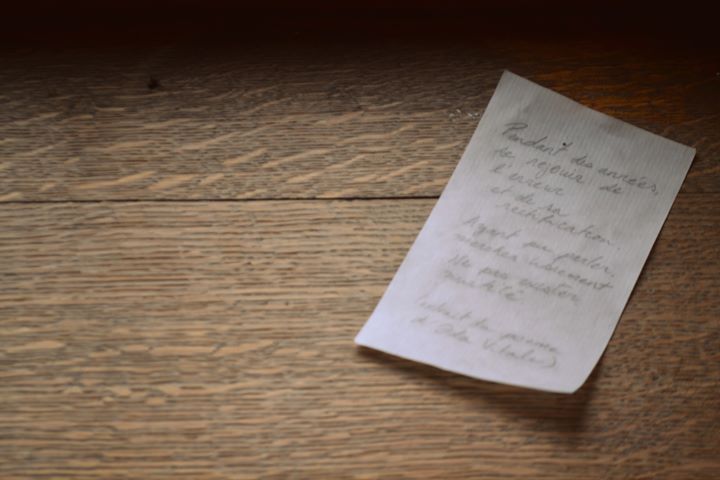 Pendant des années,
se réjouir de
l'erreur
et de sa
rectification.
Ayant pu parler,
marcher librement
Ne pas exister
mutilé
(extrait du poème
d'Ida Vitale)